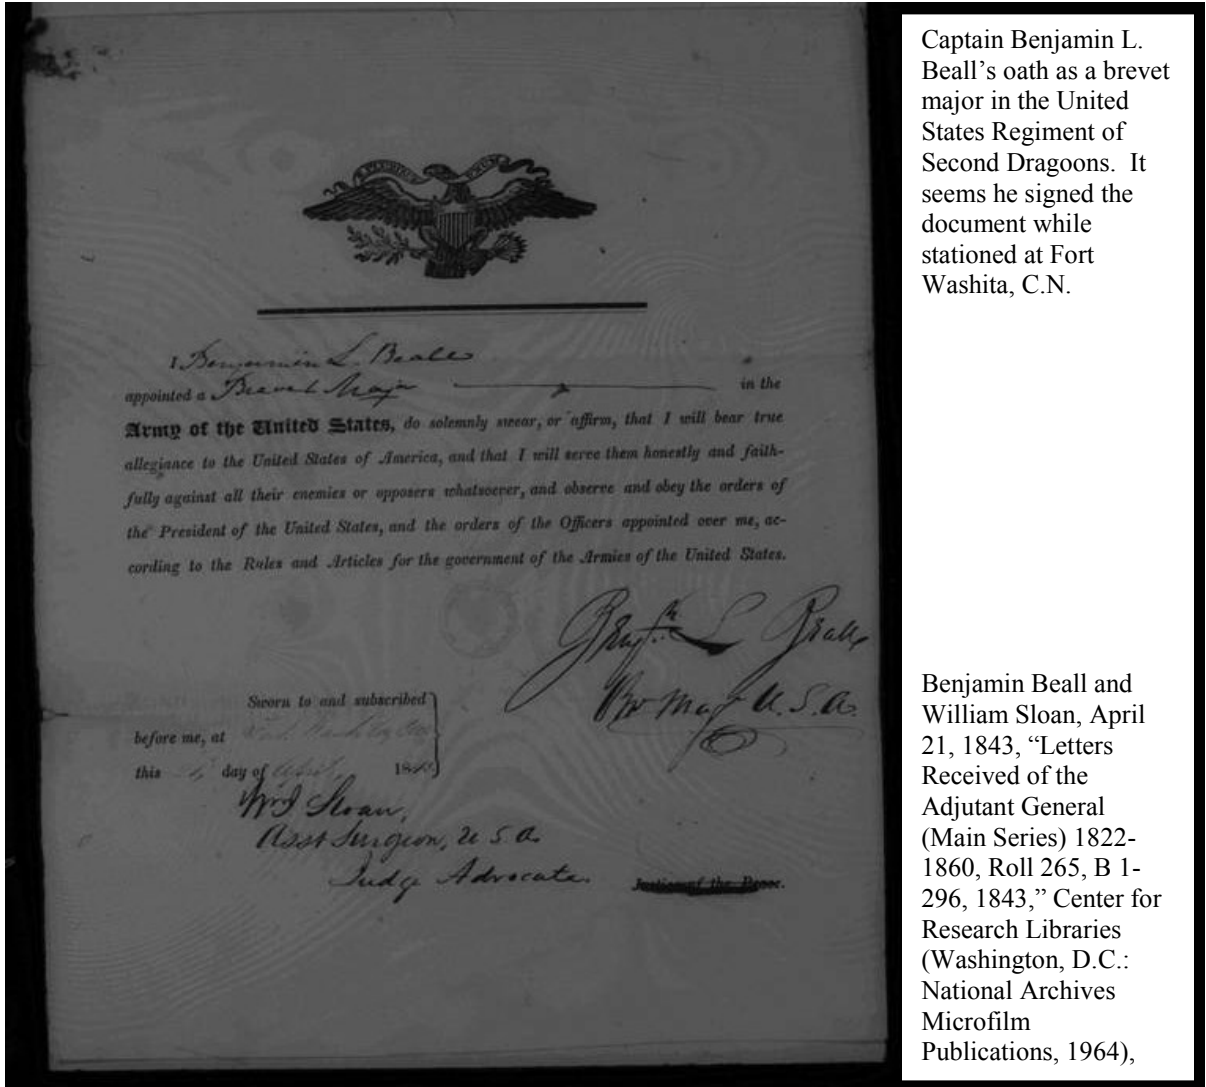 E PLURIBUS UNUM
I Benjamin L. Beall
appointed a Brevet Major in the
Army of the United States, do solemnly swear, or affirm, that I will bear true
allegiance to the United States of America, and that I will serve them honestly and faith-
fully against all their enemies or opposers whatsoever, and observe and obey the orders of
the President of the United States, and the orders of the Officers appointed over me, ac-
cording to the Rules and Articles for the government of the Armies of the United States.
Benjn. L Beall
Bv. Maj U. S. A.
Sworn to and subscribed
before me, at Fort Washita
this day of April, 1843
Wm J Sloan,
Asst Surgeon, U S A
Judge Advocate.
Justice of the Peace.
Captain Benjamin L.
Beall’s oath as a brevet
major in the United
States Regiment of
Second Dragoons.  It
seems he signed the
document while
stationed at Fort
Washita, C.N.
Benjamin Beall and
William Sloan, April
21, 1843, “Letters
Received of the
Adjutant General
(Main Series) 1822-
1860, Roll 265, B 1-
296, 1843,” Center for
Research Libraries
(Washington, D.C.:
National Archives
Microfilm
Publications, 1964),